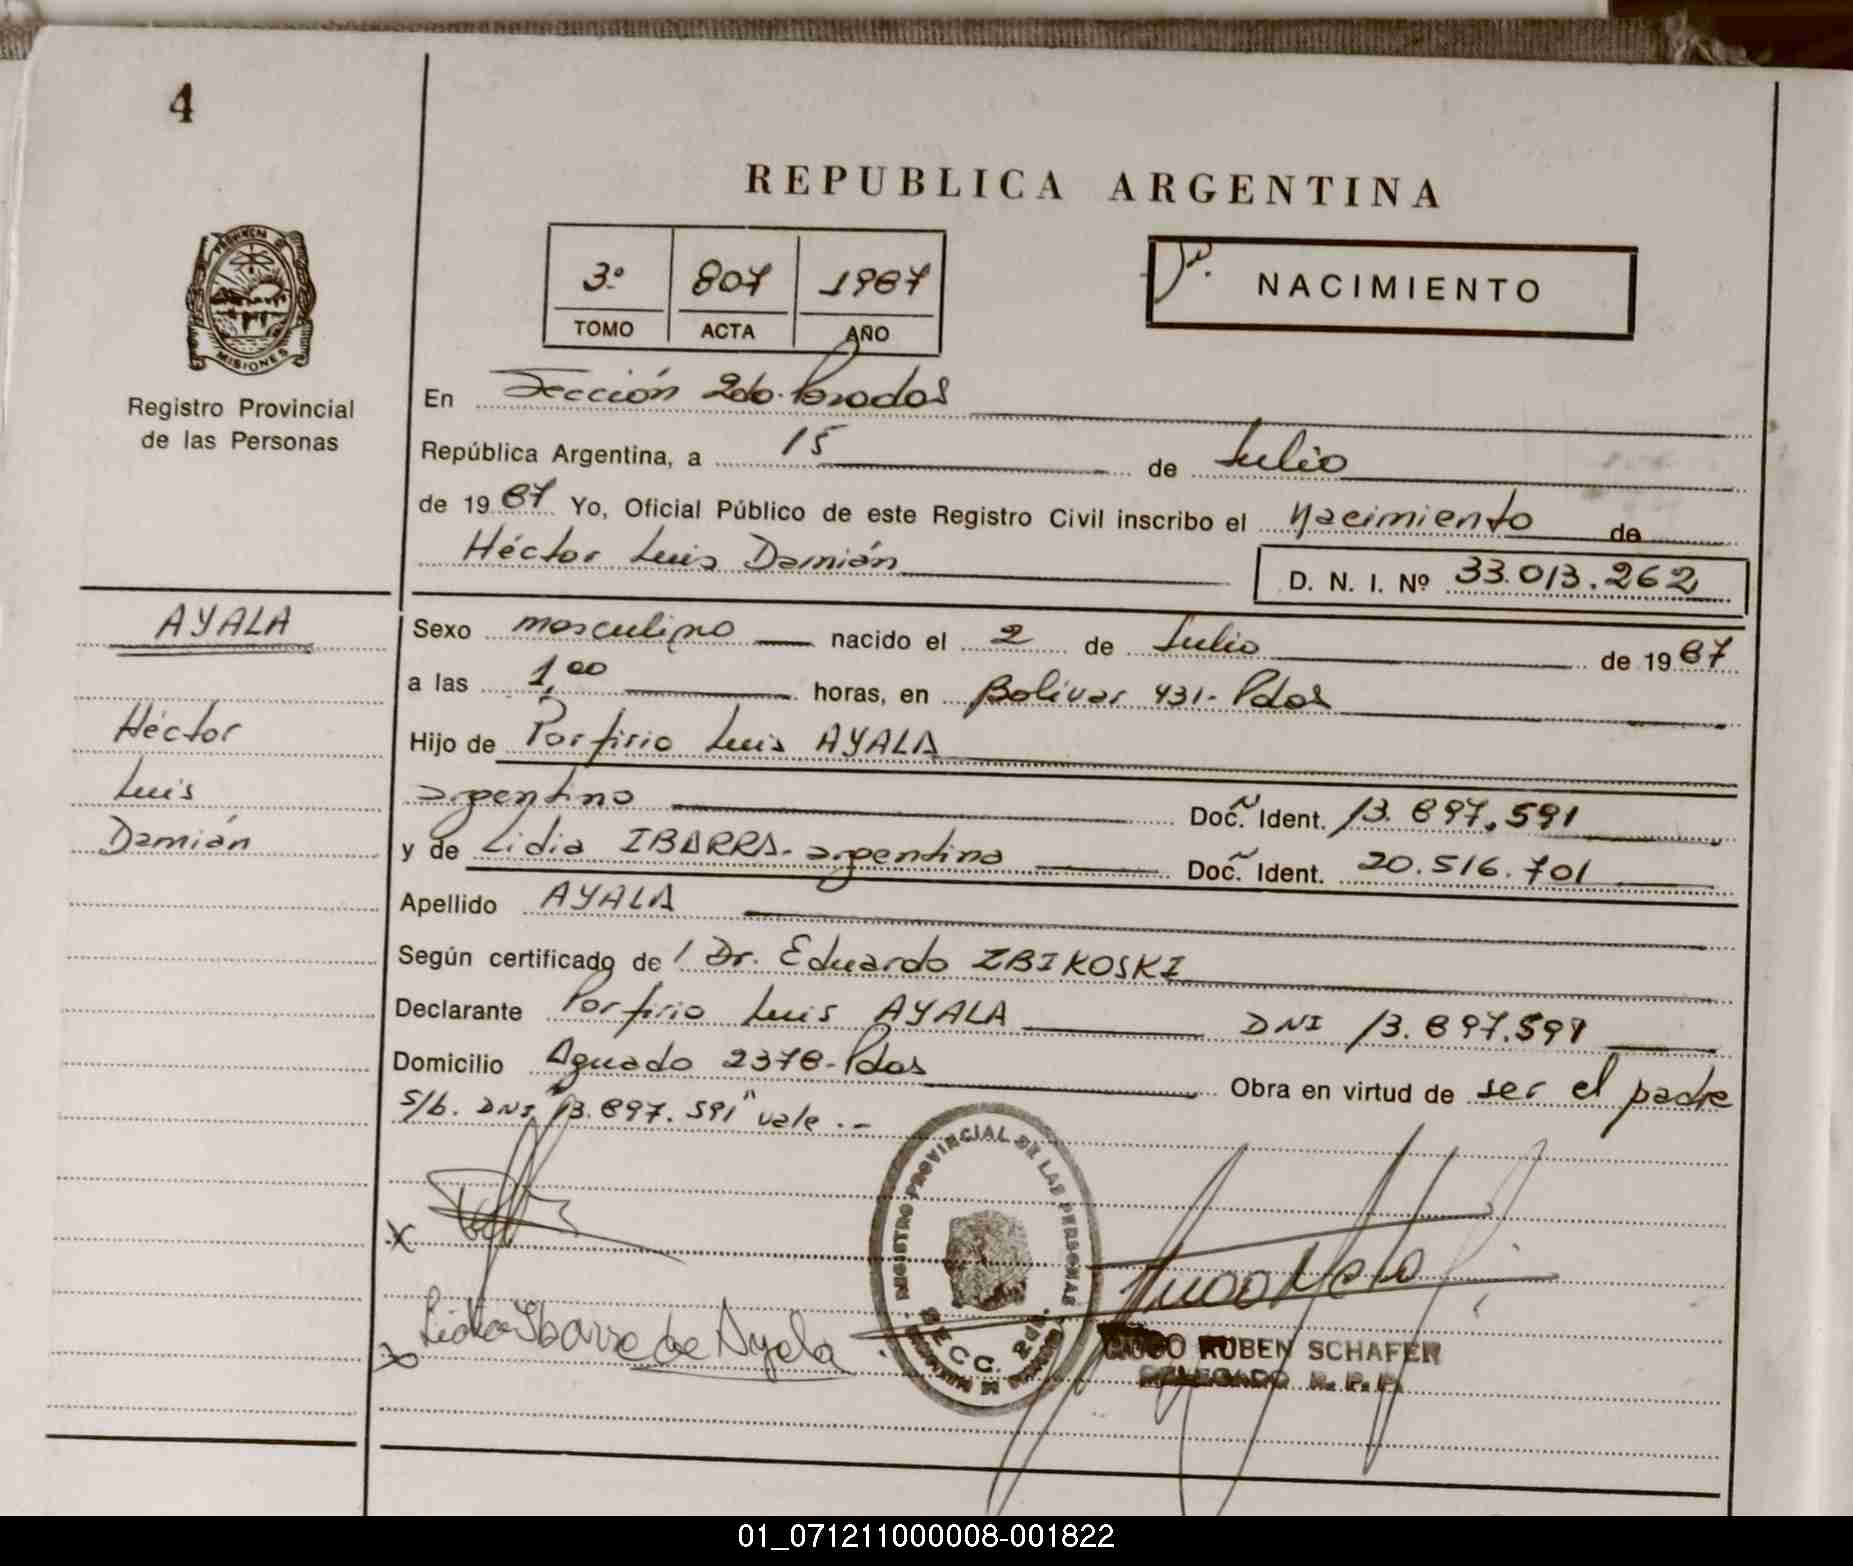 4
REPUBLICA ARGENTINA
PROVINCIA DE
MISIONES
Registro Provincial
de las Personas
3º 807 1987
TOMO ACTA AÑO
NACIMIENTO
En Sección 2do. Posadas
República Argentina, a 15 de Julio
de 1987 Yo, Oficial Público de este Registro Civil inscribo el Nacimiento de
Héctor Luis Damián D. N. I. Nº 33.013.262
AYALA
Héctor
Luis
Damián
Sexo masculino nacido el 2 de Julio de 1987
a las 1,00 horas, en Bolívar 431- Pdas
Hijo de Porfirio Luis AYALA
argentino Doc. Ident. 13.897.591
y de Lidia IBARRA- argentina Doc. Ident. 20.516.701
Apellido AYALA
Según certificado de Dr. Eduardo ZBIKOSKI
Declarante Porfirio Luis AYALA DNI 13.897.591
Domicilio Aguado 2378-Pdas Obra en virtud de ser el padre
s/b. DNI "13.897.591" vale.-
REGISTRO PROVINCIAL DE LAS PERSONAS
SECC. 2da.
Lidia Ibarra de Ayala
HUGO RUBEN SCHAFER
DELEGADO R. P. P.
01_071211000008-001822